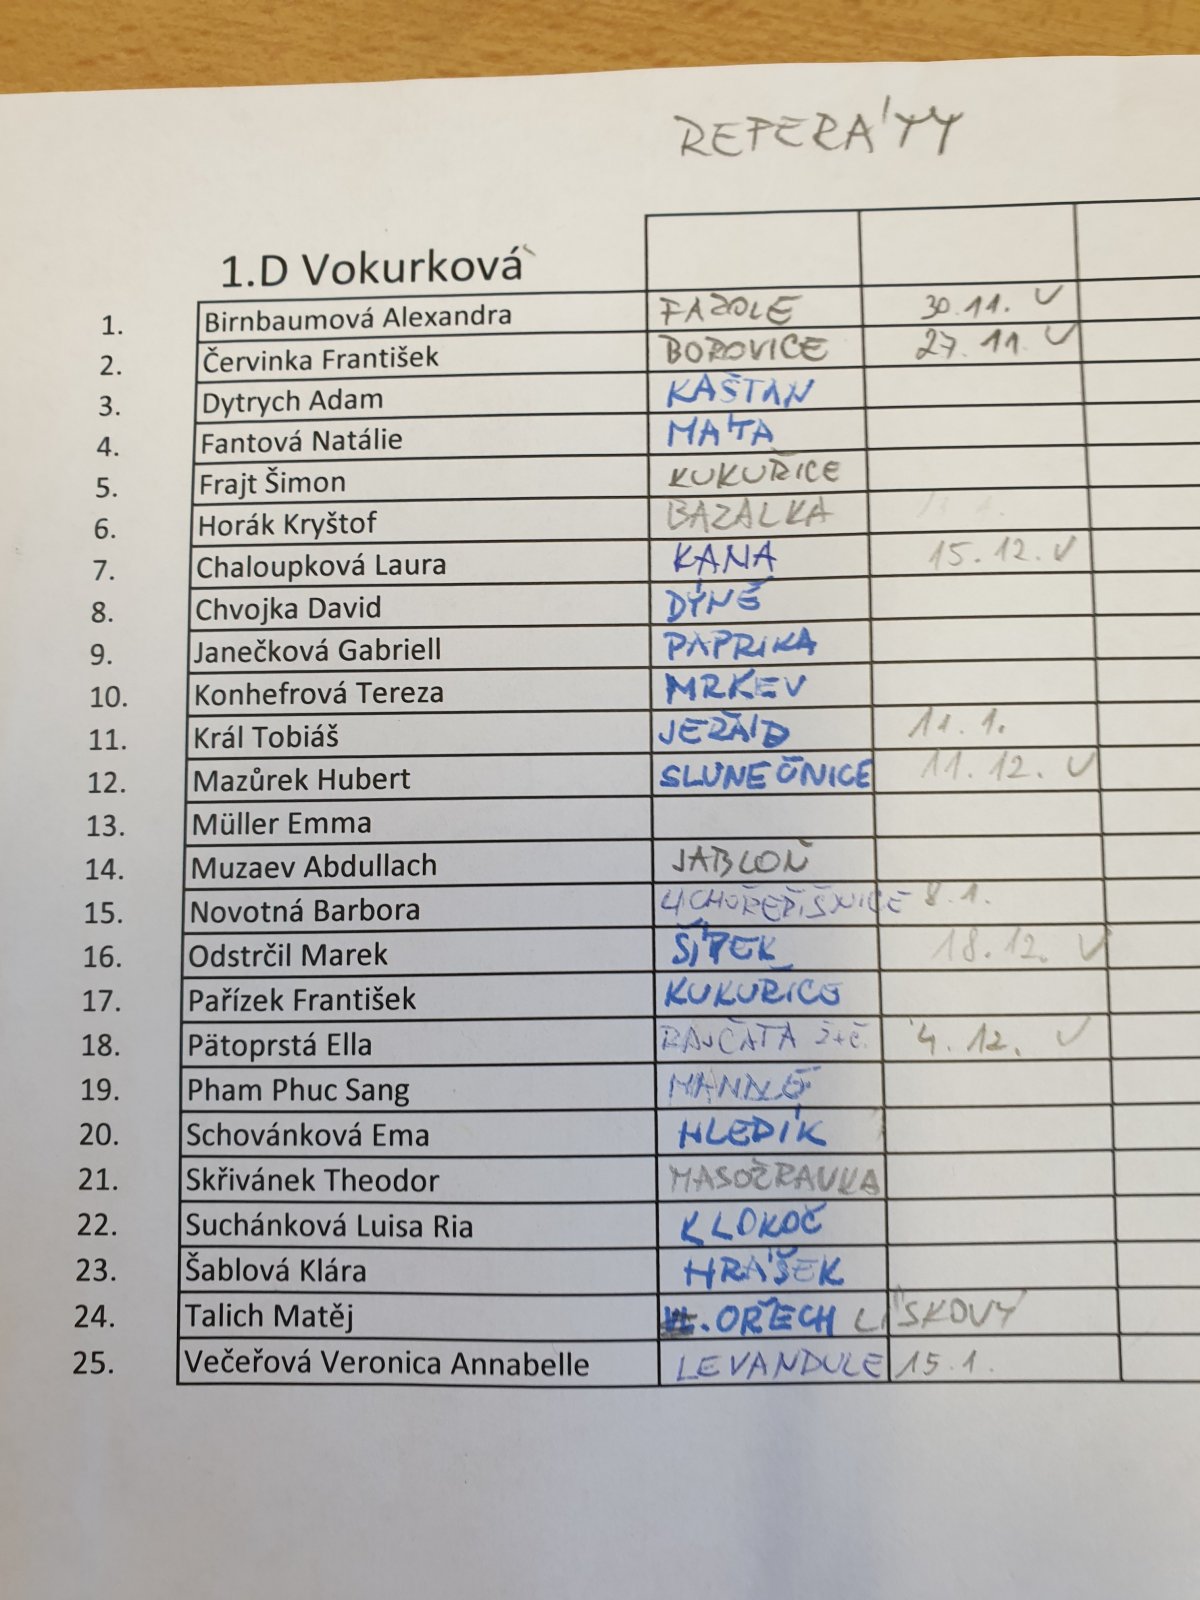 REFERÁTY
1.D Vokurková
1. Birnbaumová Alexandra FAZOLE 30.11. ✓
2. Červinka František BOROVICE 27.11. ✓
3. Dytrych Adam KAŠTAN
4. Fantová Natálie MÁTA
5. Frajt Šimon KUKUŘICE
6. Horák Kryštof BAZALKA
7. Chaloupková Laura KANA 15.12. ✓
8. Chvojka David DÝNĚ
9. Janečková Gabriell PAPRIKA
10. Konhefrová Tereza MRKEV
11. Král Tobiáš JEŘÁB 11.1.
12. Mazůrek Hubert SLUNEČNICE 11.12. ✓
13. Müller Emma
14. Muzaev Abdullach JABLOŇ
15. Novotná Barbora LICHOŘEŘIŠNICE 8.1.
16. Odstrčil Marek ŠÍPEK 18.12. ✓
17. Pařízek František KUKUŘICE
18. Pätoprstá Ella RAJČATA Ž+Č. 4.12. ✓
19. Pham Phuc Sang MANDLĚ
20. Schovánková Ema HLEDÍK
21. Skřivánek Theodor MASOŽRAVKA
22. Suchánková Luisa Ria KLOKOČ
23. Šablová Klára HRÁŠEK
24. Talich Matěj OŘECH LÍSKOVÝ
25. Večeřová Veronica Annabelle LEVANDULE 15.1.